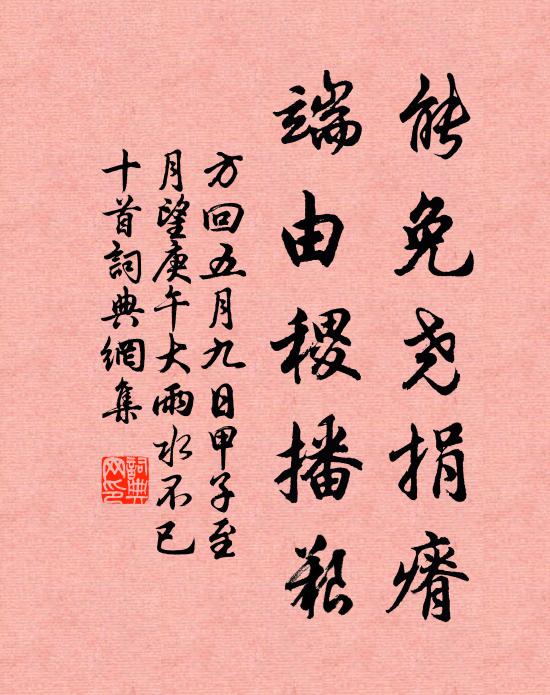 能免尧捐瘠
端由稷播艱
方回五月九日甲子至
月望庚午大雨水不已
十首詞典網集
詞典
网印